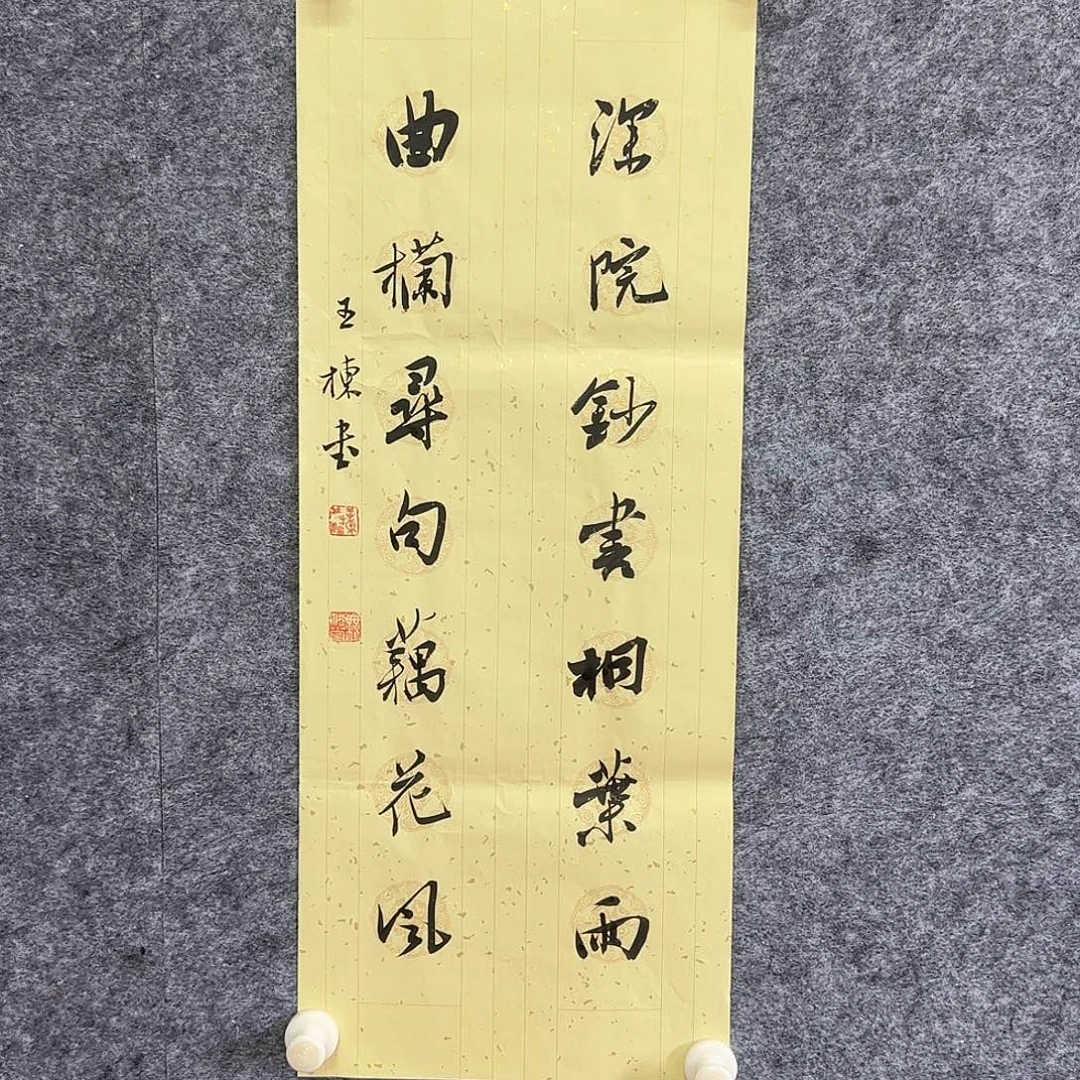 深院鈔書桐葉雨
曲欄尋句藕花风
王棟书